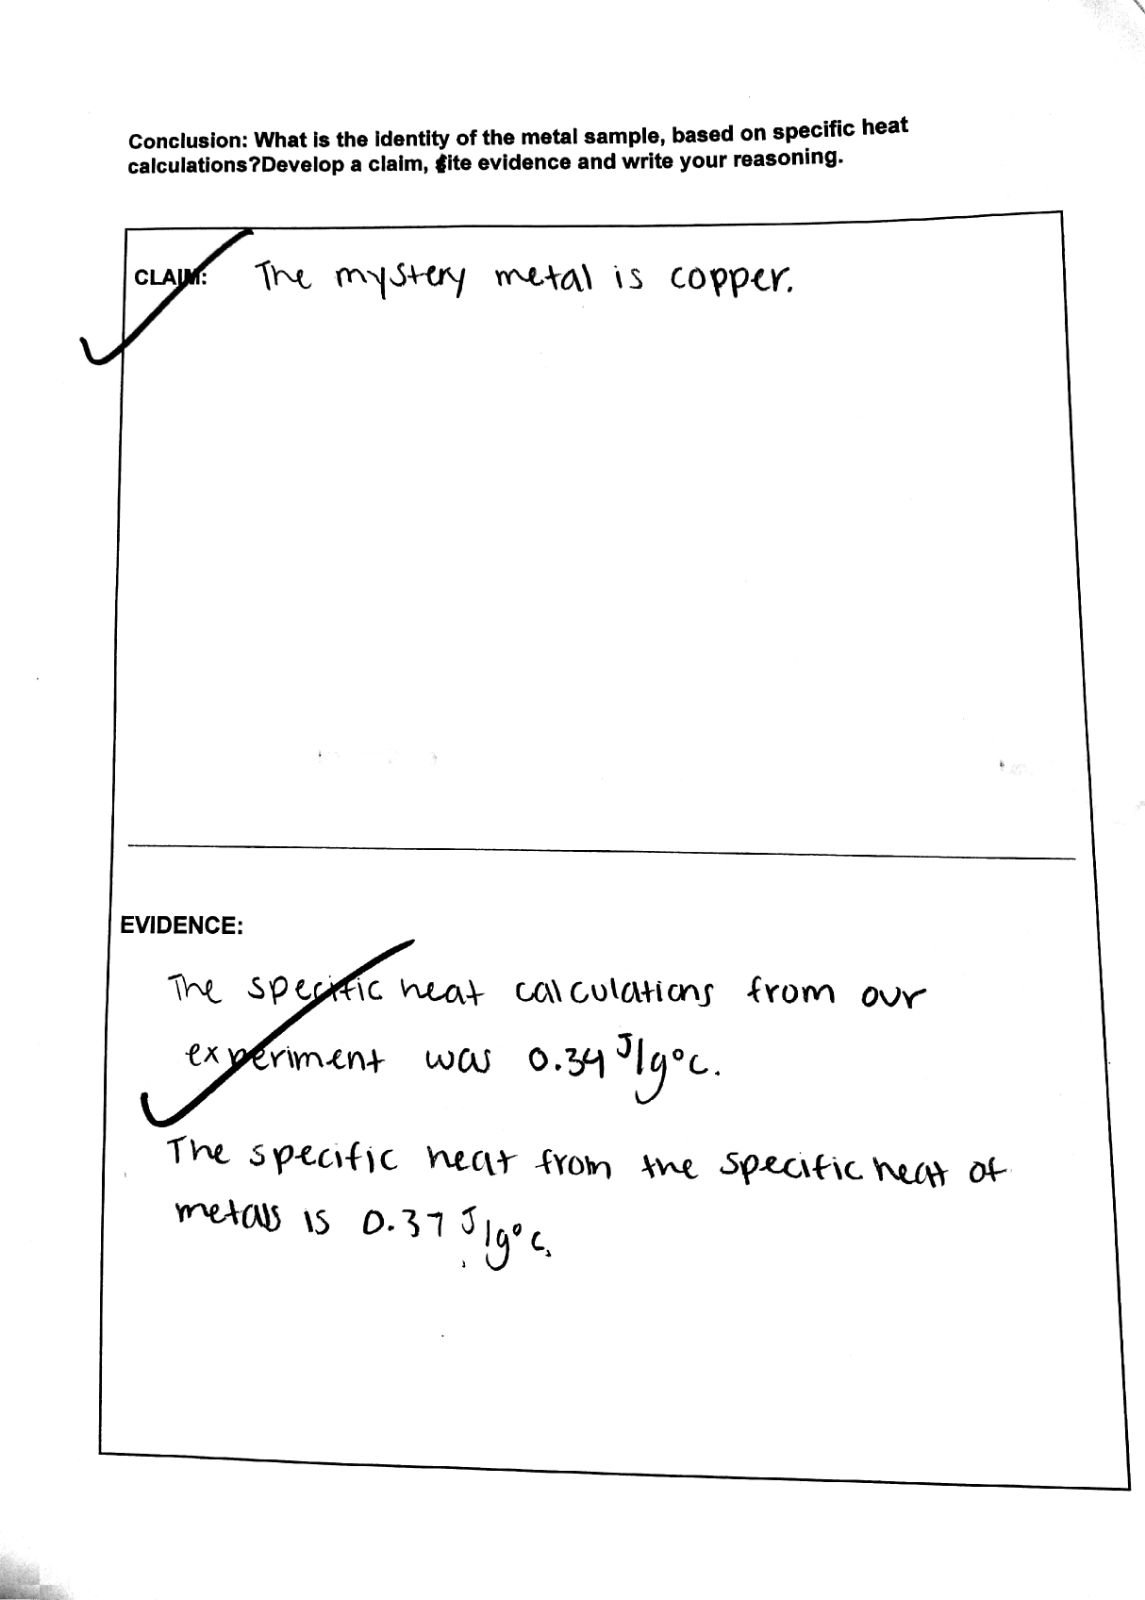 Conclusion: What is the identity of the metal sample, based on specific heat
calculations?Develop a claim, cite evidence and write your reasoning.
CLAIM: The mystery metal is copper.
EVIDENCE:
The specific heat calculations from our
experiment was 0.34 J/g°C.
The specific heat from the specific heat of
metals is 0.37 J/g°C.